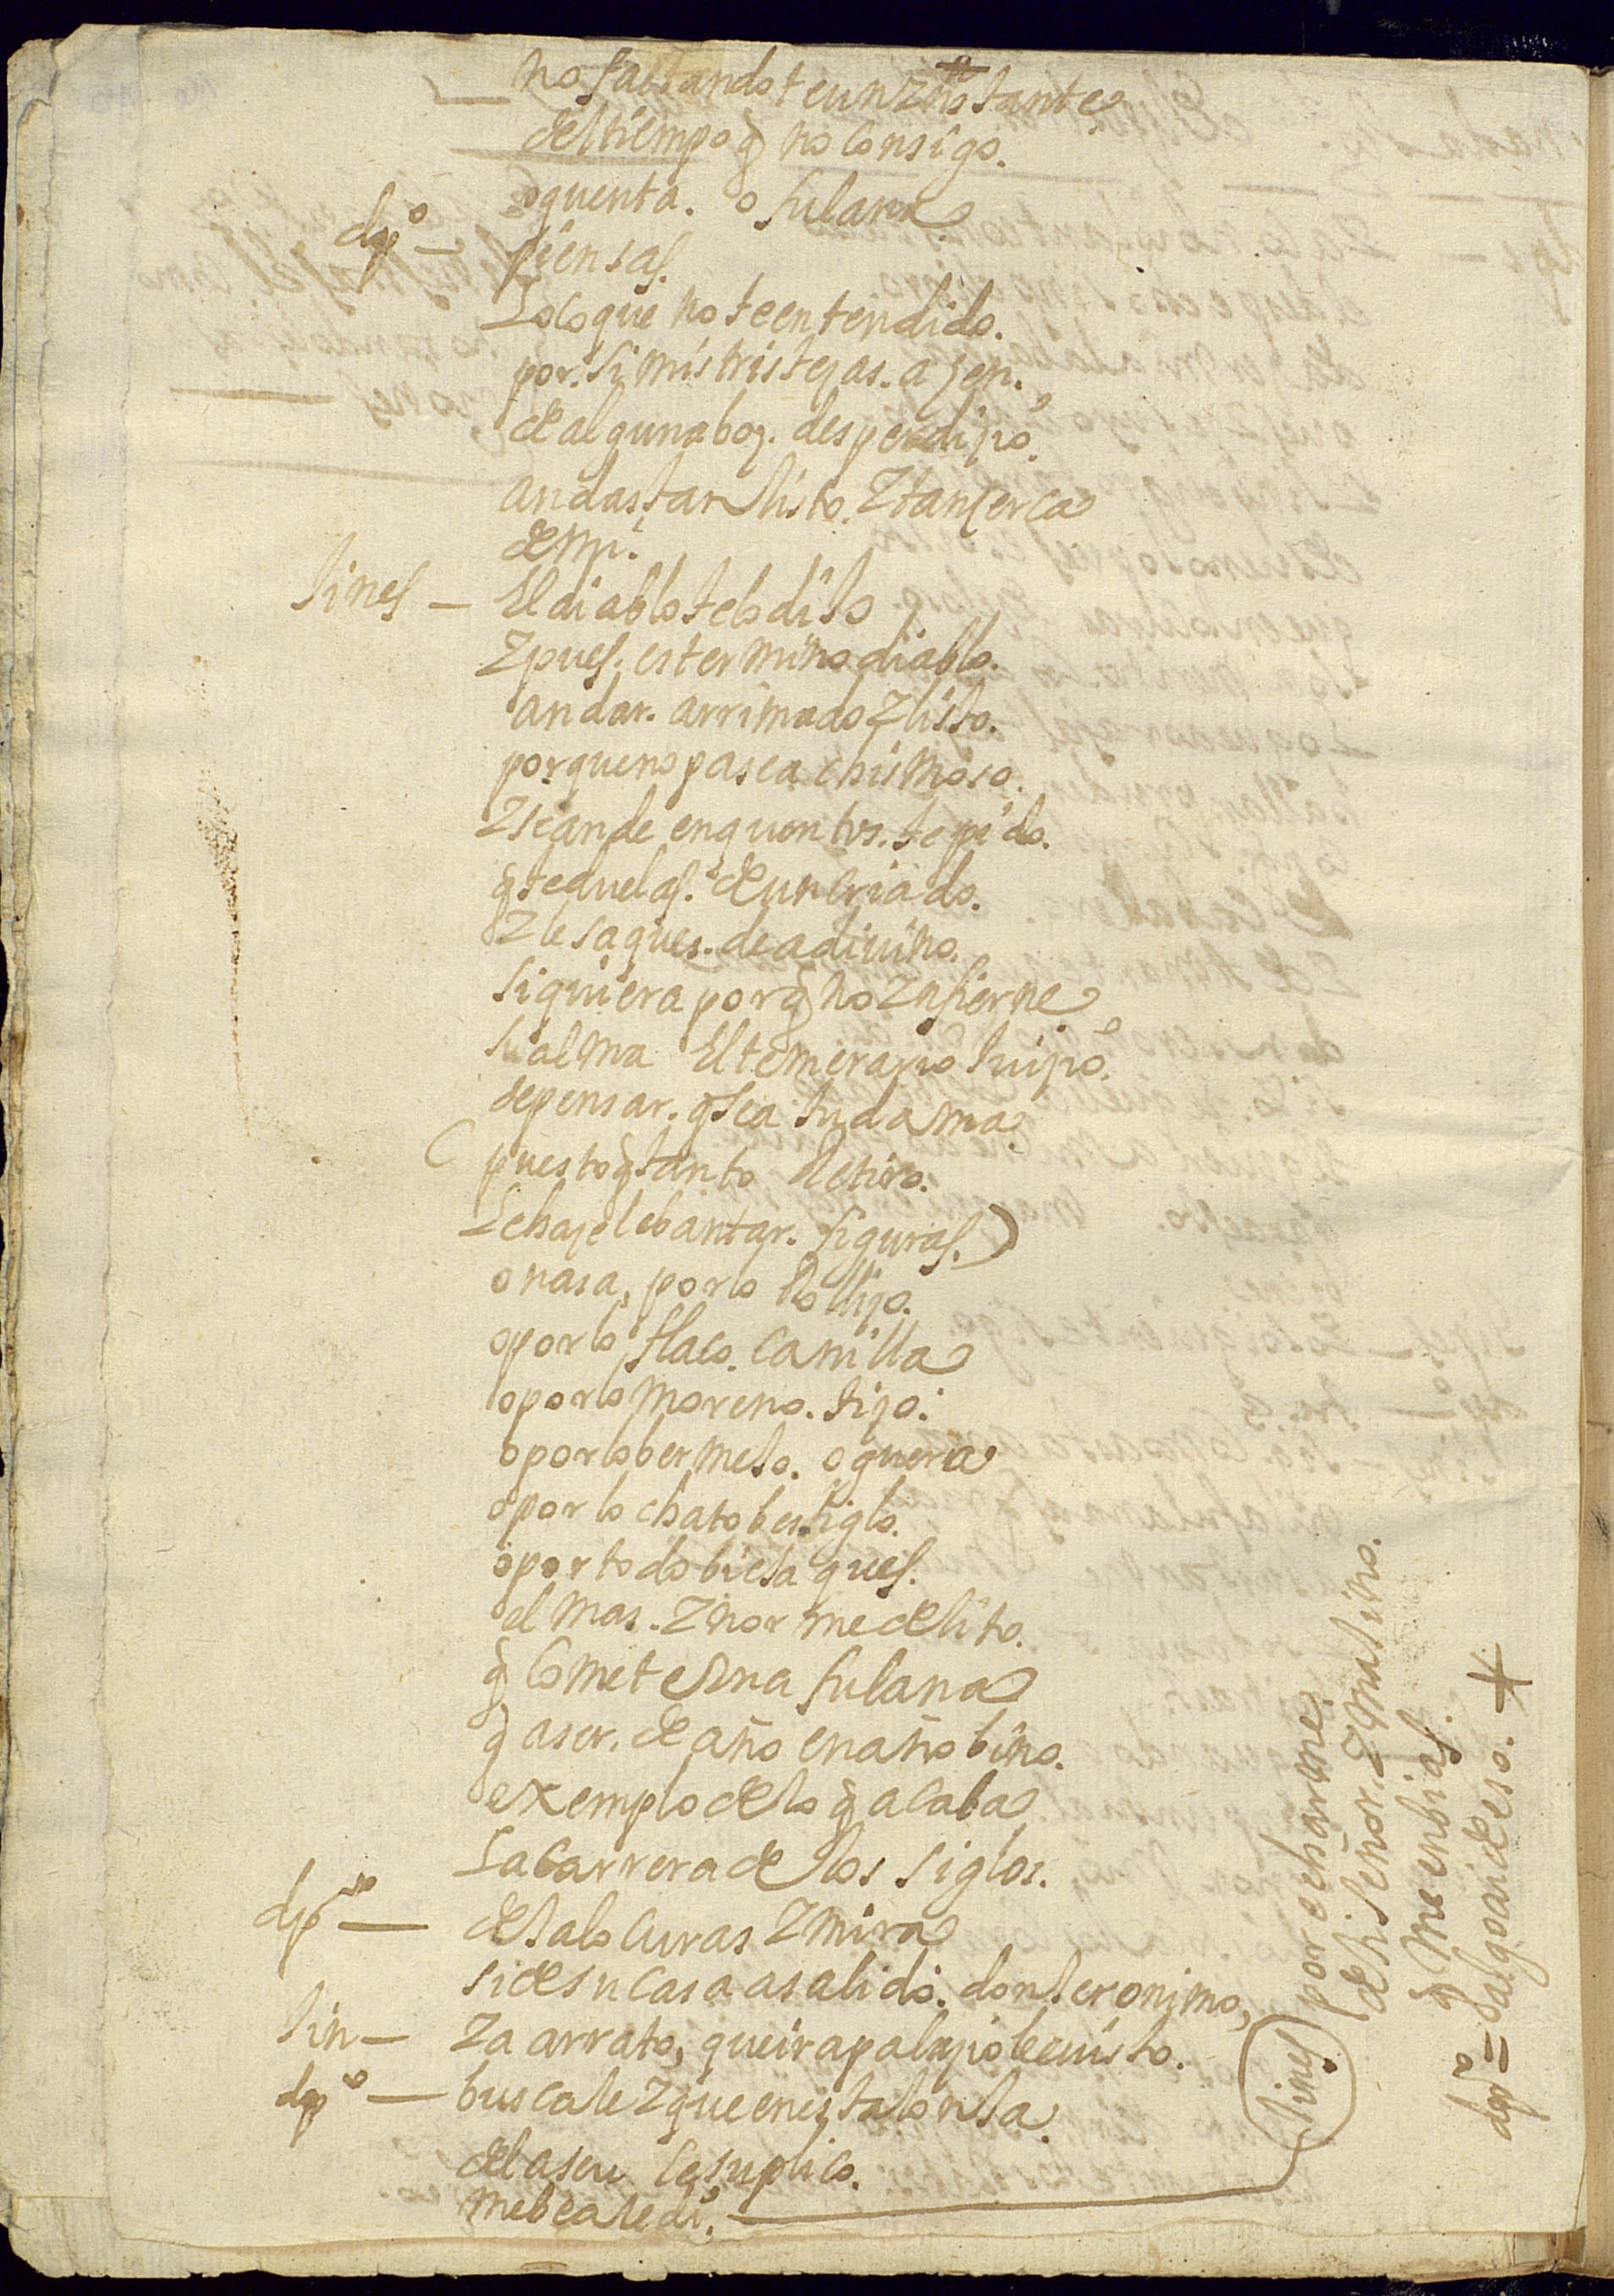 no faltandote un ynstante
del tiempo q̃ no consigo.
o quenta. o fulana
dgo — piensas.
Loco que no te entendido.
por si mis tristeças. açen.
de alguna boz. desperdiçio.
andas tan listo. y tan çerca
de mi.
Jines — El diablo telo dijo
y pues. es termino diablo.
andar. arrimado y listo.
porque no pasea chismoso.
y se ande en quentos. te pido.
q̃ te duelas. de un criado.
y le saques. de adiuino.
siquiera por q̃ no ynfierne
su alma El temerario juiçio.
de pensar. q̃ sea tu dama
( puesto q̃ tanto Retiro.
Le haçe lebantar. figuras. )
o nasa, por lo Rolliço.
o por lo flaco. canilla
o por lo moreno. tiço.
o por lo bermejo. oguera
o por lo chato bestiglo.
o por todo bieja ques.
el mas. ynorme delito.
q̃ comete una fulana
q̃ a ser. de año en año bino.
exemplo de lo q̃ acaba
La carrera de los siglos.
dgo — deja locuras y mira
si de su casa a salido. don Jeronimo,
Jin — ya arrato, que ir a palaçio le e uisto.
dgo — buscale y que en esta lonja
de la seu le suplico.
me bea le di. —
(Jines) por echarme.
de ti señor. y malino.
q̃ me enbias.
dgo = salgo ai de eso. +